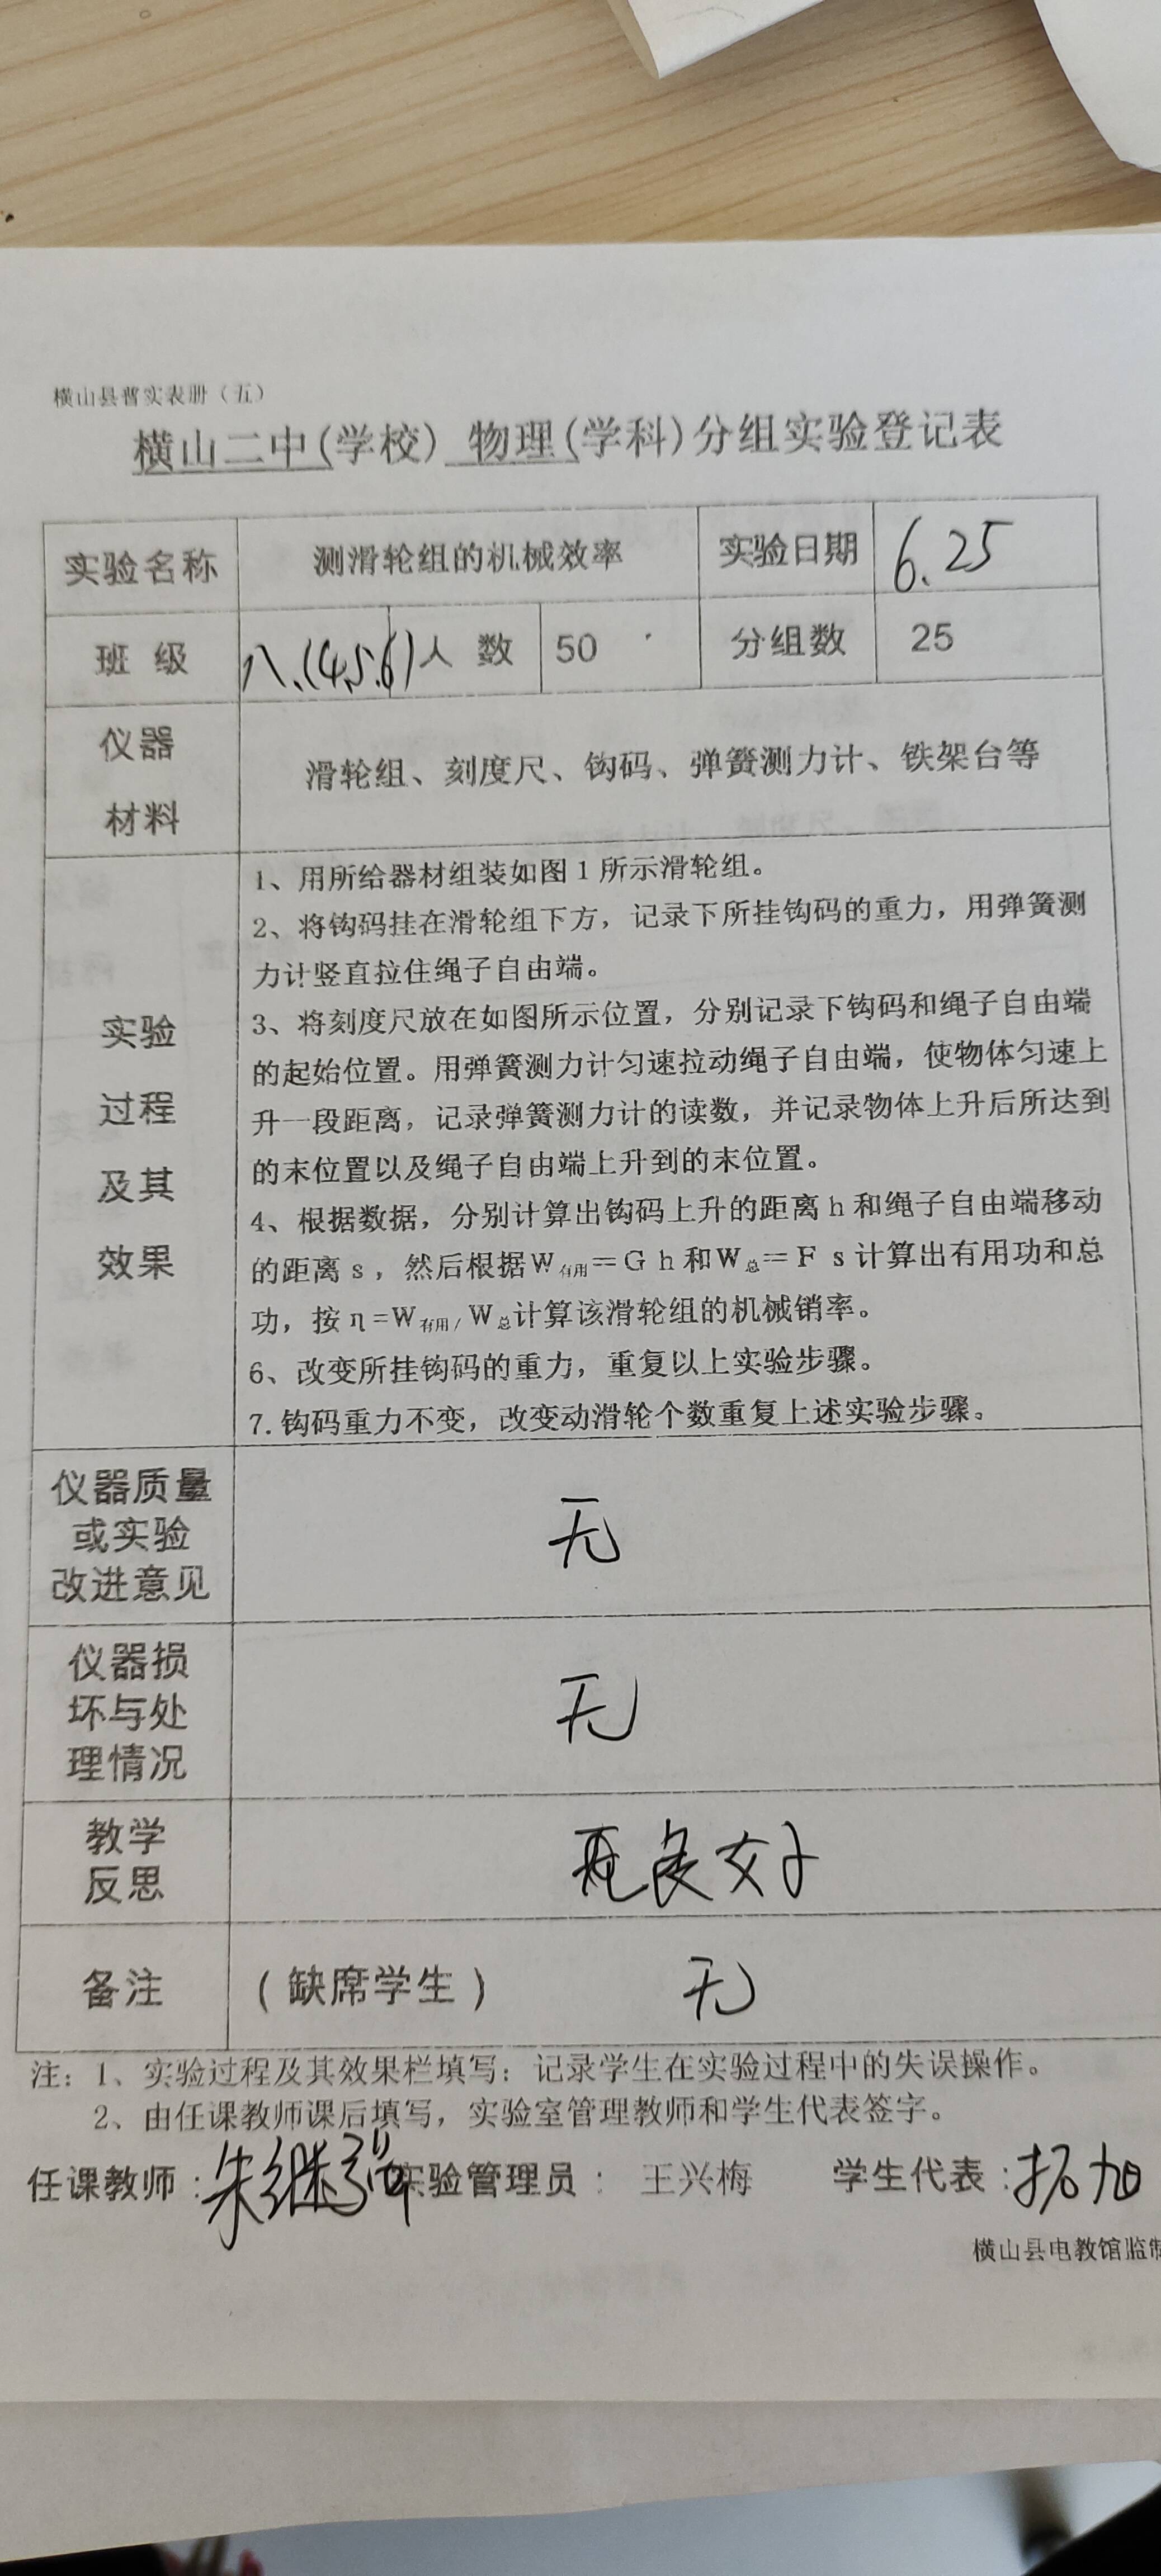 横山县普实表册（五）
横山二中(学校) 物理(学科)分组实验登记表
实验名称 测滑轮组的机械效率 实验日期 6.25
班级 八.(4.5.6) 人数 50 分组数 25
仪器
材料
滑轮组、刻度尺、钩码、弹簧测力计、铁架台等
实验
过程
及其
效果
1、用所给器材组装如图1所示滑轮组。
2、将钩码挂在滑轮组下方，记录下所挂钩码的重力，用弹簧测
力计竖直拉住绳子自由端。
3、将刻度尺放在如图所示位置，分别记录下钩码和绳子自由端
的起始位置。用弹簧测力计匀速拉动绳子自由端，使物体匀速上
升一段距离，记录弹簧测力计的读数，并记录物体上升后所达到
的末位置以及绳子自由端上升到的末位置。
4、根据数据，分别计算出钩码上升的距离h和绳子自由端移动
的距离s，然后根据W有用=G h和W总=F s计算出有用功和总
功，按η=W有用/W总计算该滑轮组的机械销率。
6、改变所挂钩码的重力，重复以上实验步骤。
7.钩码重力不变，改变动滑轮个数重复上述实验步骤。
仪器质量
或实验
改进意见
无
仪器损
坏与处
理情况
无
教学
反思
好
备注 (缺席学生) 无
注：1、实验过程及其效果栏填写：记录学生在实验过程中的失误操作。
2、由任课教师课后填写，实验室管理教师和学生代表签字。
任课教师：朱继 实验管理员：王兴梅 学生代表：拓加
横山县电教馆监制